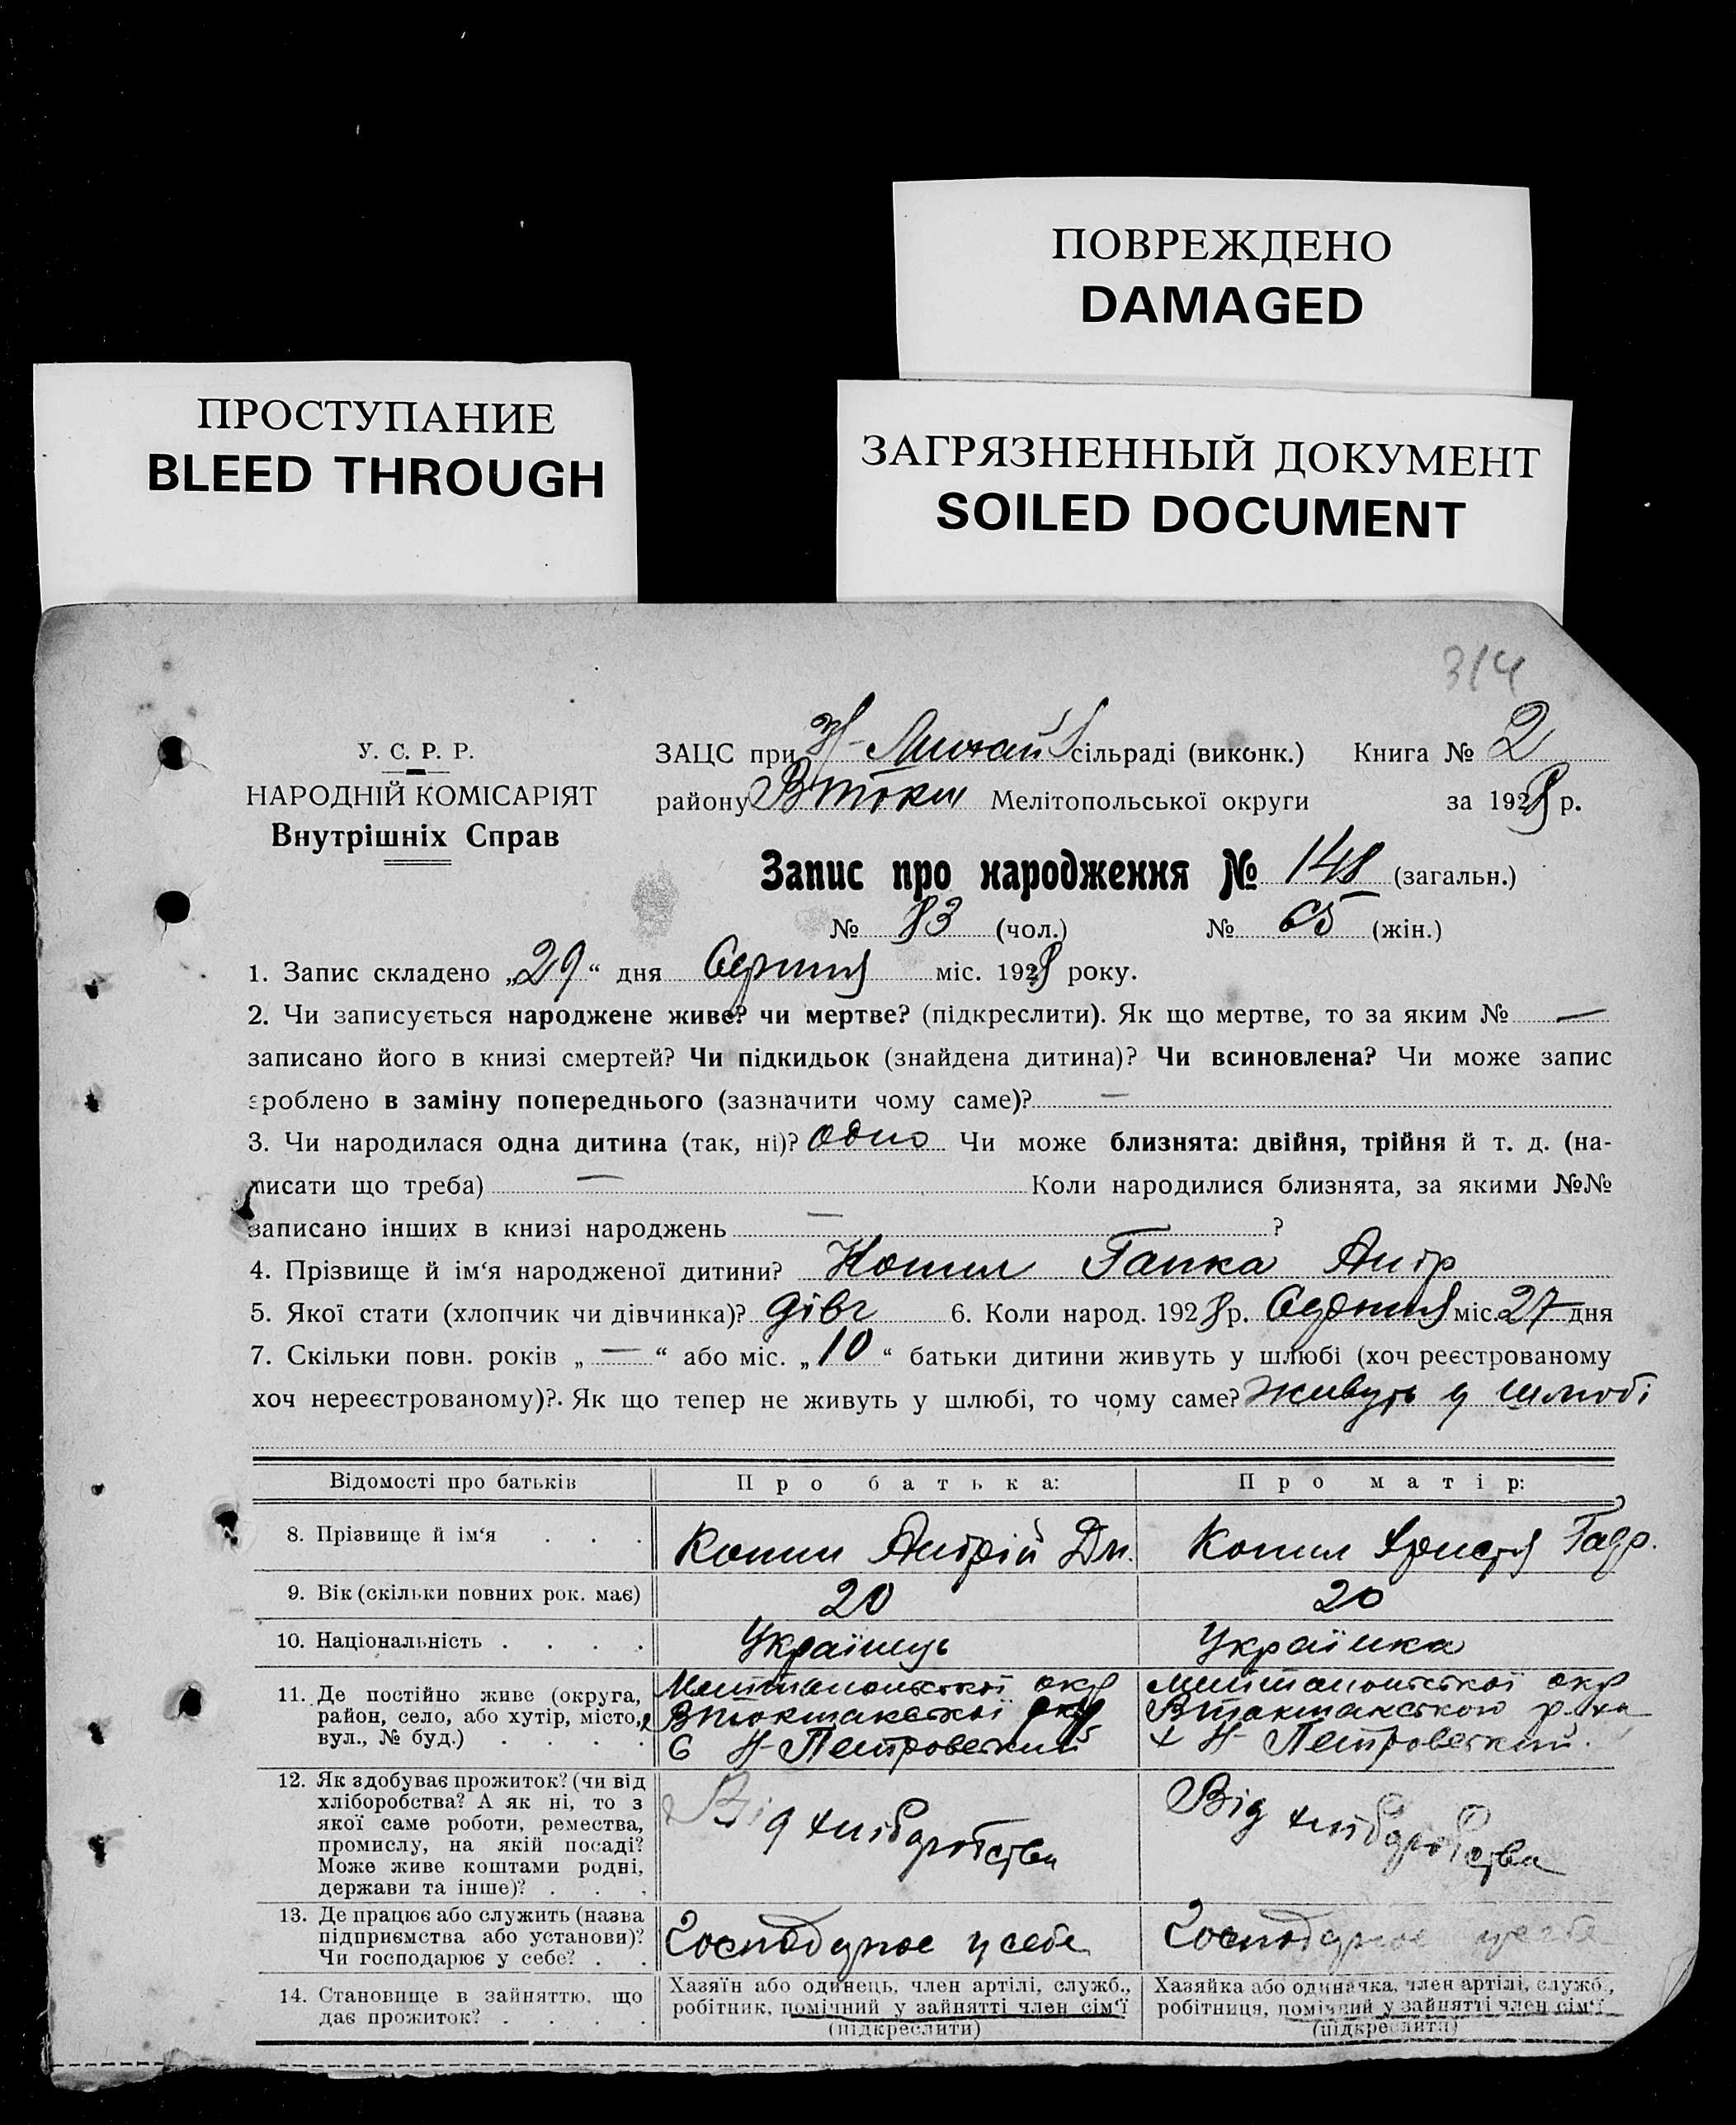 ПОВРЕЖДЕНО
DAMAGED
ПРОСТУПАНИЕ
BLEED THROUGH
ЗАГРЯЗНЕННЫЙ ДОКУМЕНТ
SOILED DOCUMENT
314
У. С. Р. Р.
НАРОДНІЙ КОМІСАРІЯТ
Внутрішніх Справ
ЗАЦС при Н-Михай сільраді (виконк.) Книга № 2
району ВТокм Мелітопольської округи за 1928 р.
Запис про народження № 148 (загальн.)
№ 83 (чол.) № 65 (жін.)
1. Запис складено „29“ дня Серпня міс. 1928 року.
2. Чи записується народжене живе? чи мертве? (підкреслити). Як що мертве, то за яким № —
записано його в книзі смертей? Чи підкидьок (знайдена дитина)? Чи всиновлена? Чи може запис
зроблено в заміну попереднього (зазначити чому саме)? —
3. Чи народилася одна дитина (так, ні)? одно Чи може близнята: двійня, трійня й т. д. (на-
писати що треба) — Коли народилися близнята, за якими №№
записано інших в книзі народжень — ?
4. Прізвище й ім‘я народженої дитини? Копил Гапка Андр
5. Якої стати (хлопчик чи дівчинка)? дівч 6. Коли народ. 1928 р. Серпня міс. 27 дня
7. Скільки повн. років „—“ або міс. „10“ батьки дитини живуть у шлюбі (хоч реєстрованому
хоч нереєстрованому)?. Як що тепер не живуть у шлюбі, то чому саме? живуть у шлюбі
Відомості про батьків Про батька: Про матір:
8. Прізвище й ім‘я . . . Копил Андрій Дм. Копил Христя
9. Вік (скільки повних рок. має) 20 20
10. Національність . . . . Українець Українка
11. Де постійно живе (округа,
район, село, або хутір, місто,
вул., № буд.) . . . .
Мелітопольської окр
Втокмакської
с Н-Петровский
Мелітопольської окр
Втокмакского р-на
х Н-Петровский.
12. Як здобуває прожиток? (чи від
хліборобства? А як ні, то з
якої саме роботи, ремества,
промислу, на якій посаді?
Може живе коштами родні,
держави та інше)? . . .
Від хліборобства
Від хліборобства
13. Де працює або служить (назва
підприємства або установи)?
Чи господарює у себе? . .
Господарює у себе
Господарює у себе
14. Становище в зайняттю, що
дає прожиток? . . . .
Хазяїн або одинець, член артілі, служб.,
робітник, помічний у зайнятті член сім‘ї
(підкреслити)
Хазяйка або одиначка, член артілі, служб.,
робітниця, помічний у зайнятті член сім‘ї
(підкреслити)